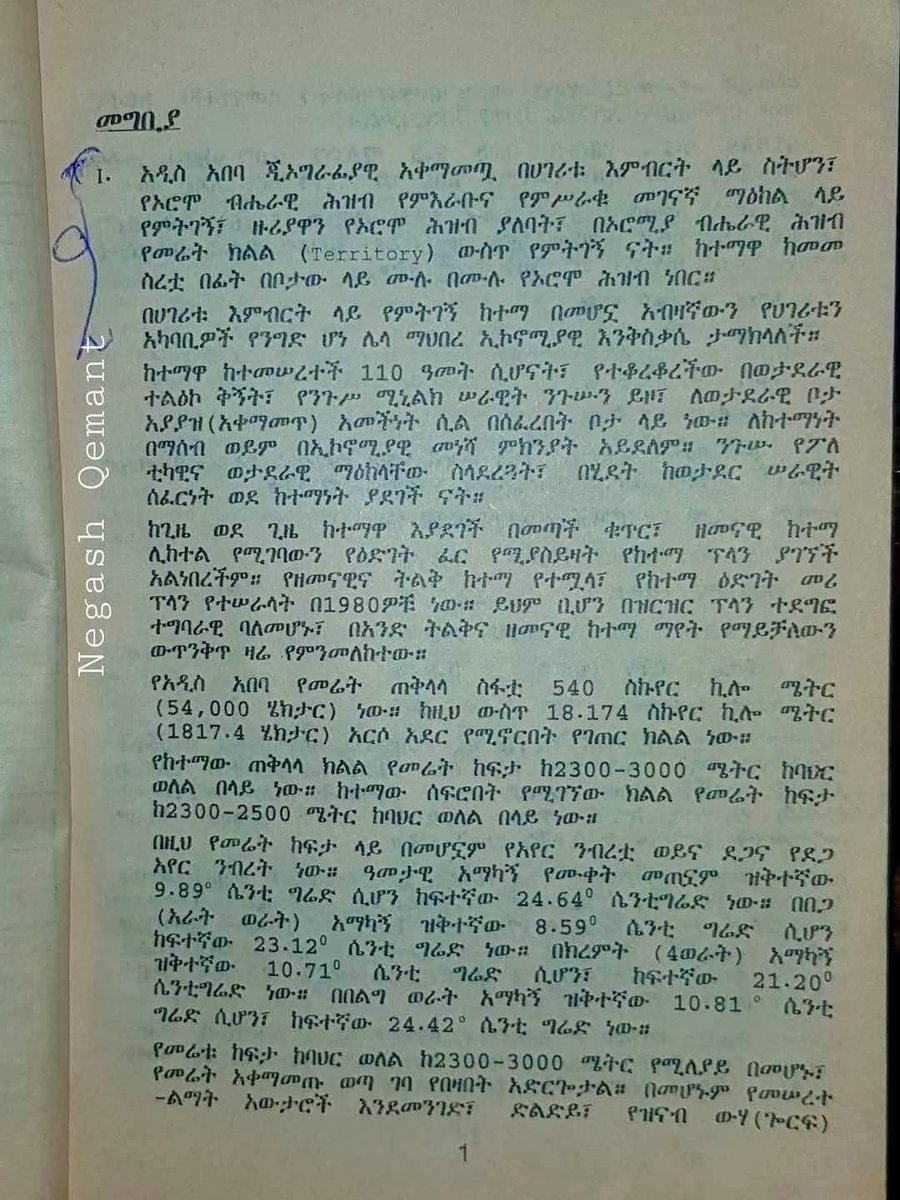 መግቢያ
I. አዲስ አበባ ጂኦግራፊያዊ አቀማመጧ በሀገሪቱ እምብርት ላይ ስትሆን፣
የኦሮሞ ብሔራዊ ሕዝብ የምእራቡና የምሥራቁ መገናኛ ማዕከል ላይ
የምትገኝ፣ ዙሪያዋን የኦሮሞ ሕዝብ ያለባት፣ በኦሮሚያ ብሔራዊ ሕዝብ
የመሬት ክልል (Territory) ውስጥ የምትገኝ ናት። ከተማዋ ከመመ
ስረቷ በፊት በቦታው ላይ ሙሉ በሙሉ የኦሮሞ ሕዝብ ነበር።
በሀገሪቱ እምብርት ላይ የምትገኝ ከተማ በመሆኗ አብዛኛውን የሀገሪቱን
አካባቢዎች የንግድ ሆነ ሌላ ማህበረ ኢኮኖሚያዊ እንቅስቃሴ ታማክላለች።
ከተማዋ ከተመሠረተች 110 ዓመት ሲሆናት፣ የተቆረቆረችው በወታደራዊ
ተልዕኮ ቅኝት፣ የንጉሥ ሚኒልክ ሠራዊት ንጉሡን ይዞ፣ ለወታደራዊ ቦታ
አያያዝ(አቀማመጥ) አመችነት ሲል በሰፈረበት ቦታ ላይ ነው። ለከተማነት
በማሰብ ወይም በኢኮኖሚያዊ መነሻ ምክንያት አይደለም። ንጉሡ የፖለ
ቲካዊና ወታደራዊ ማዕከላቸው ስላደረጓት፣ በሂደት ከወታደር ሠራዊት
ሰፈርነት ወደ ከተማነት ያደገች ናት።
ከጊዜ ወደ ጊዜ ከተማዋ እያደገች በመጣች ቁጥር፣ ዘመናዊ ከተማ
ሊከተል የሚገባውን የዕድገት ፈር የሚያስይዛት የከተማ ፕላን ያገኘች
አልነበረችም። የዘመናዊና ትልቅ ከተማ የተሟላ፣ የከተማ ዕድገት መሪ
ፕላን የተሠራላት በ1980ዎቹ ነው። ይህም ቢሆን በዝርዝር ፕላን ተደግፎ
ተግባራዊ ባለመሆኑ፣ በአንድ ትልቅና ዘመናዊ ከተማ ማየት የማይቻለውን
ውጥንቅጥ ዛሬ የምንመለከተው።
የአዲስ አበባ የመሬት ጠቅላላ ስፋቷ 540 ስኩየር ኪሎ ሜትር
(54,000 ሄክታር) ነው። ከዚህ ውስጥ 18.174 ስኩየር ኪሎ ሜትር
(1817.4 ሄክታር) አርሶ አደር የሚኖርበት የገጠር ክልል ነው።
የከተማው ጠቅላላ ክልል የመሬት ከፍታ ከ2300-3000 ሜትር ከባህር
ወለል በላይ ነው። ከተማው ሰፍሮበት የሚገኘው ክልል የመሬት ከፍታ
ከ2300-2500 ሜትር ከባህር ወለል በላይ ነው።
በዚህ የመሬት ከፍታ ላይ በመሆኗም የአየር ንብረቷ ወይና ደጋና የደጋ
አየር ንብረት ነው። ዓመታዊ አማካኝ የሙቀት መጠኗም ዝቅተኛው
9.89° ሴንቲ ግሬድ ሲሆን ከፍተኛው 24.64⁰ ሴንቲግሬድ ነው። በበጋ
(አራት ወራት) አማካኝ ዝቅተኛው 8.59⁰ ሴንቲ ግሬድ ሲሆን
ከፍተኛው 23.12⁰ ሴንቲ ግሬድ ነው። በክረምት (4ወራት) አማካኝ
ዝቅተኛው 10.71⁰ ሴንቲ ግሬድ ሲሆን፣ ከፍተኛው 21.20⁰
ሴንቲግሬድ ነው። በበልግ ወራት አማካኝ ዝቅተኛው 10.81 ° ሴንቲ
ግሬድ ሲሆን፣ ከፍተኛው 24.42° ሴንቲ ግሬድ ነው።
የመሬቱ ከፍታ ከባህር ወለል ከ2300-3000 ሜትር የሚለያይ በመሆኑ፣
የመሬት አቀማመጡ ወጣ ገባ የበዛበት አድርጐታል። በመሆኑም የመሠረተ
-ልማት አውታሮች እንደመንገድ፣ ድልድይ፣ የዝናብ ውሃ(ጐርፍ)
1
Negash Qemant